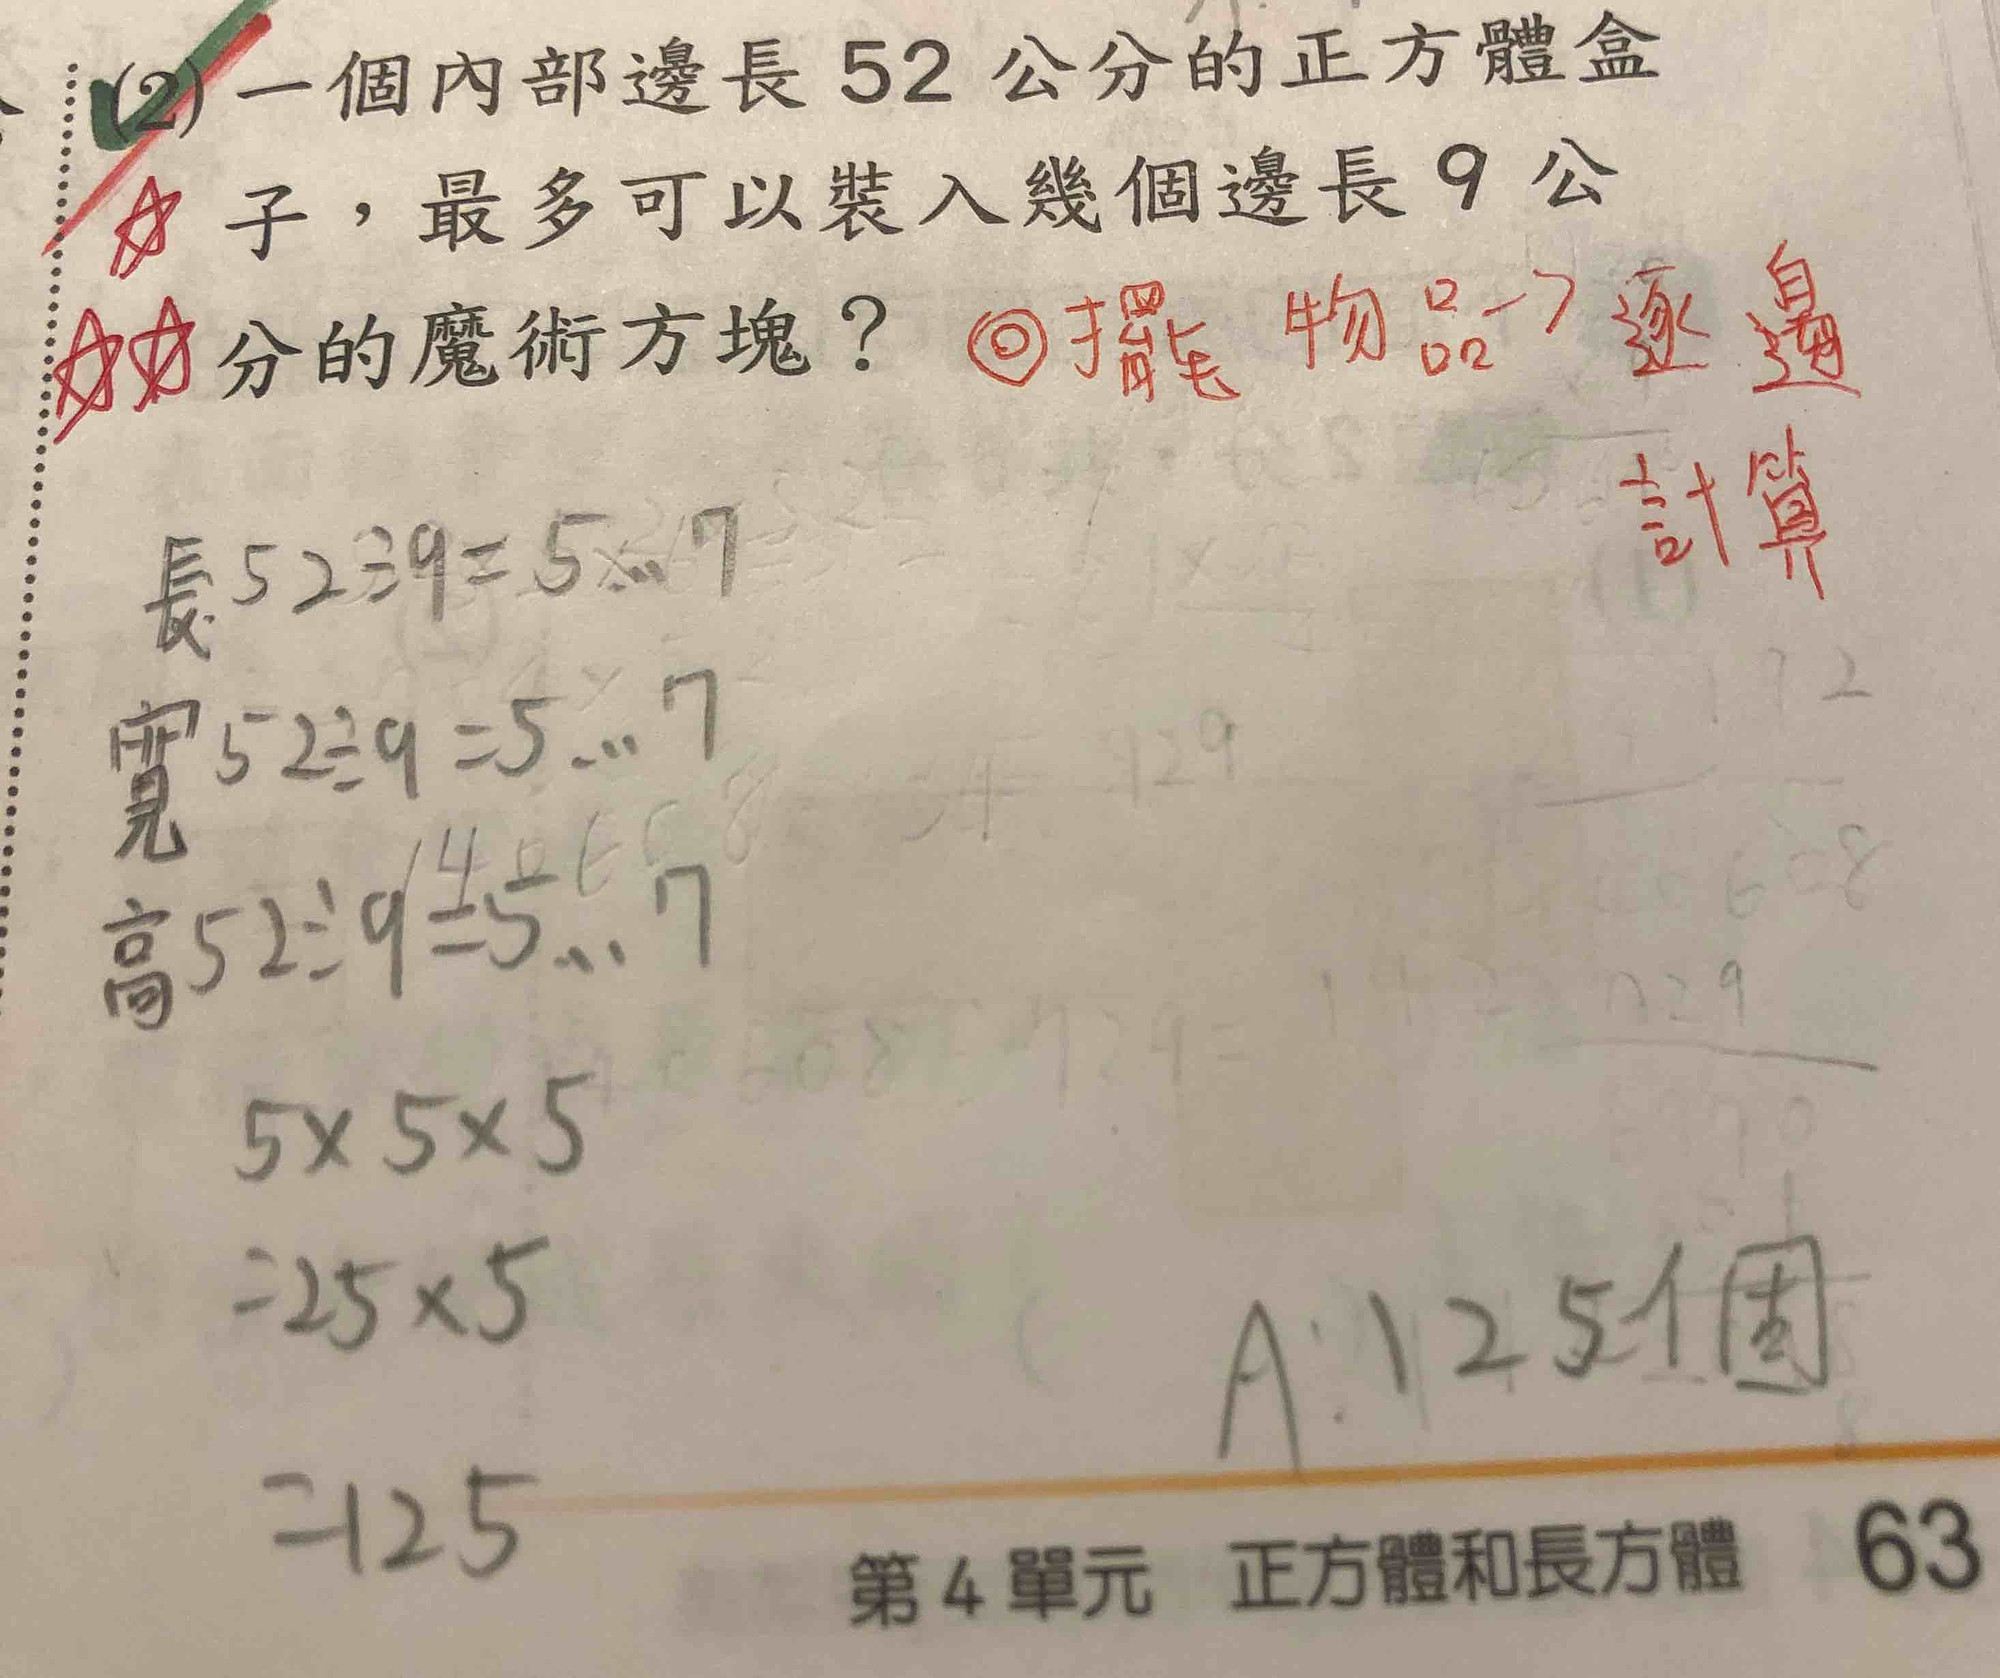 (2) 一個內部邊長 52 公分的正方體盒
子，最多可以裝入幾個邊長 9 公
分的魔術方塊？ ◎擺物品→逐邊
計算
長 52÷9=5…7
寬 52÷9=5…7
高 52÷9=5…7
5×5×5
=25×5
=125
A:125個
第 4 單元 正方體和長方體 63